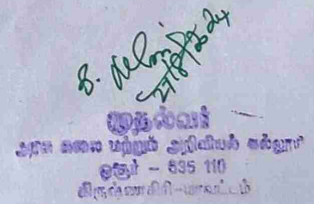 முதல்வர்
அரசு கலை மற்றும் அறிவியல் கல்லூரி
ஓசூர் - 635 110
கிருஷ்ணகிரி-மாவட்டம்